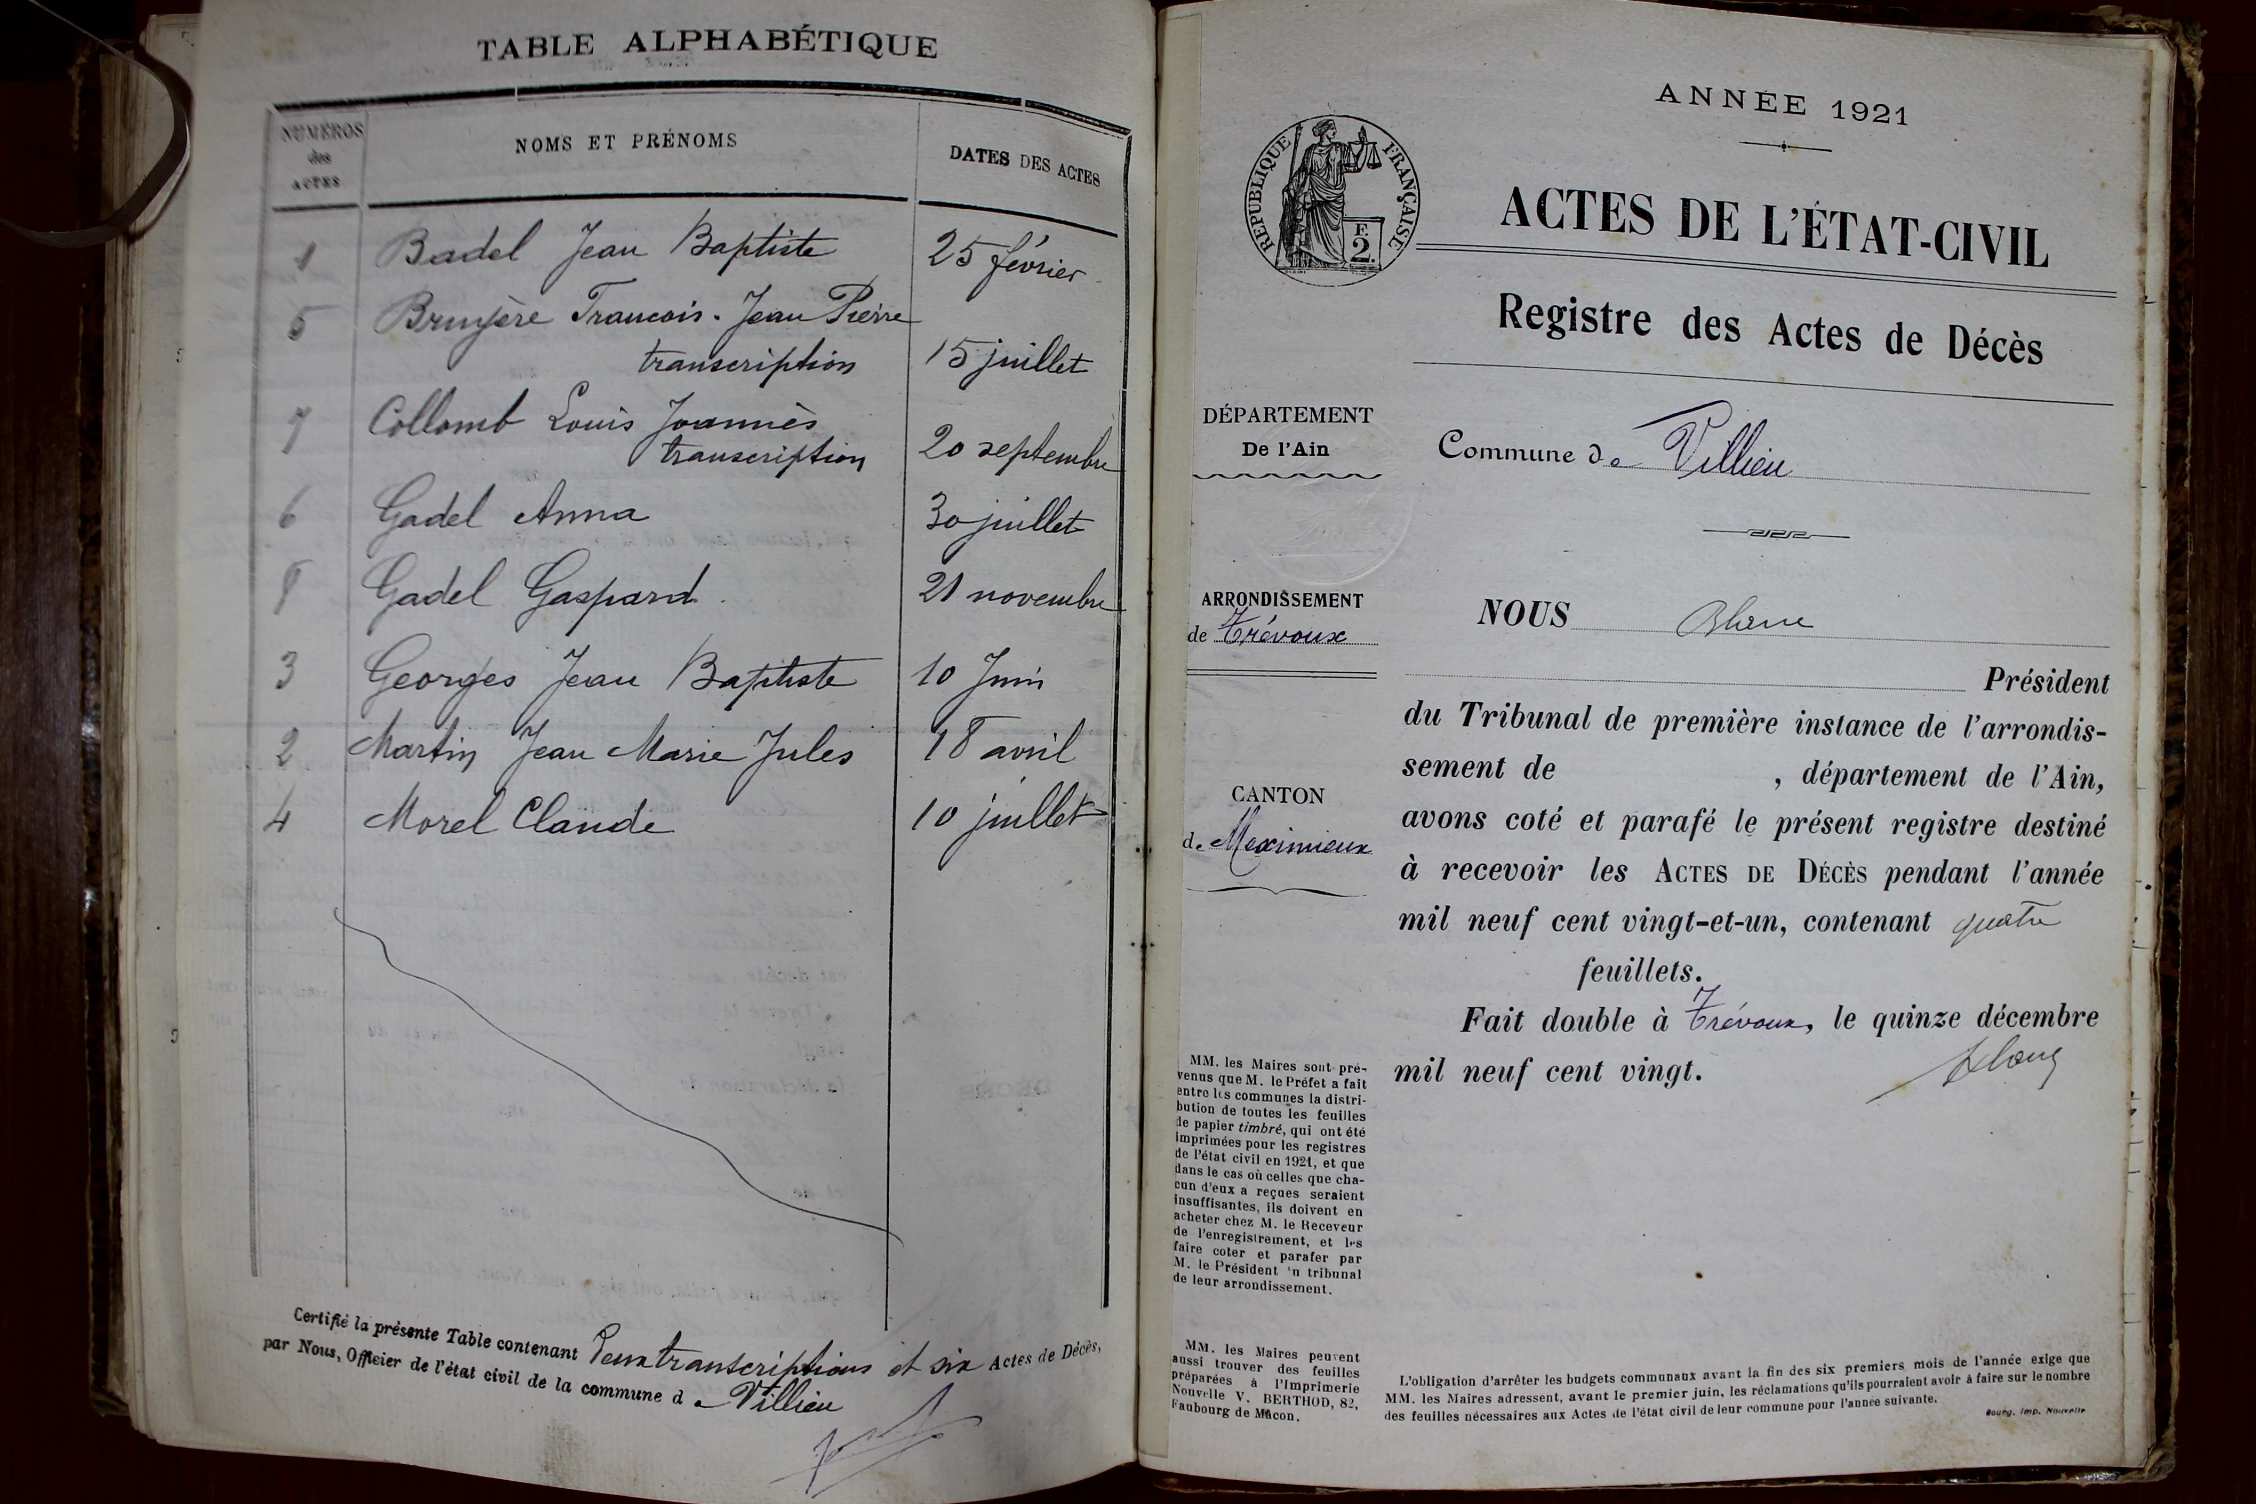 TABLE ALPHABÉTIQUE
NUMÉROS des ACTES
NOMS ET PRÉNOMS
DATES DES ACTES
1 Badel Jean Baptiste 25 février
5 Bruyère Francois. Jean Pierre
transcription 15 juillet
7 Collomb Louis Joannès
transcription 20 septembre
6 Gadel Anna 30 juillet
8 Gadel Gaspard 21 novembre
3 Georges Jean Baptiste 10 Juin
2 Martin Jean Marie Jules 18 avril
4 Morel Claude 10 juillet
Certifié la présente Table contenant Deux transcriptions et six Actes de Décès,
par Nous, Officier de l'état civil de la commune de Villieu
ANNÉE 1921
RÉPUBLIQUE FRANÇAISE
F. 2.
ACTES DE L'ÉTAT-CIVIL
Registre des Actes de Décès
DÉPARTEMENT
De l'Ain
Commune de Villieu
ARRONDISSEMENT
de Trévoux
NOUS
Président
du Tribunal de première instance de l'arrondis-
sement de , département de l'Ain,
CANTON
de Meximieux
avons coté et parafé le présent registre destiné
à recevoir les ACTES DE DÉCÈS pendant l'année
mil neuf cent vingt-et-un, contenant quatre
feuillets.
Fait double à Trévoux, le quinze décembre
mil neuf cent vingt.
MM. les Maires sont pré-
venus que M. le Préfet a fait
entre les communes la distri-
bution de toutes les feuilles
de papier timbré, qui ont été
imprimées pour les registres
de l'état civil en 1921, et que
dans le cas où celles que cha-
cun d'eux a reçues seraient
insuffisantes, ils doivent en
acheter chez M. le Receveur
de l'enregistrement, et les
faire coter et parafer par
M. le Président 'n tribunal
de leur arrondissement.
MM. les Maires peuvent
aussi trouver des feuilles
préparées à l'Imprimerie
Nouvelle V. BERTHOD, 82,
Faubourg de Mâcon.
L'obligation d'arrêter les budgets communaux avant la fin des six premiers mois de l'année exige que
MM. les Maires adressent, avant le premier juin, les réclamations qu'ils pourraient avoir à faire sur le nombre
des feuilles nécessaires aux Actes de l'état civil de leur commune pour l'année suivante.
Bourg. Imp. Nouvelle